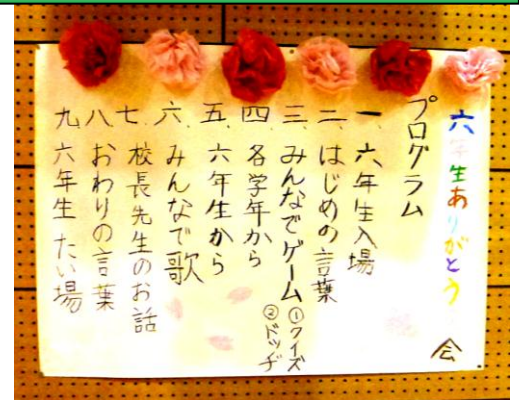 六年生ありがとう会
プログラム
一、六年生入場
二、はじめの言葉
三、みんなでゲーム①クイズ
②ドッヂ
四、各学年から
五、六年生から
六、みんなで歌
七、校長先生のお話
八、おわりの言葉
九、六年生たい場